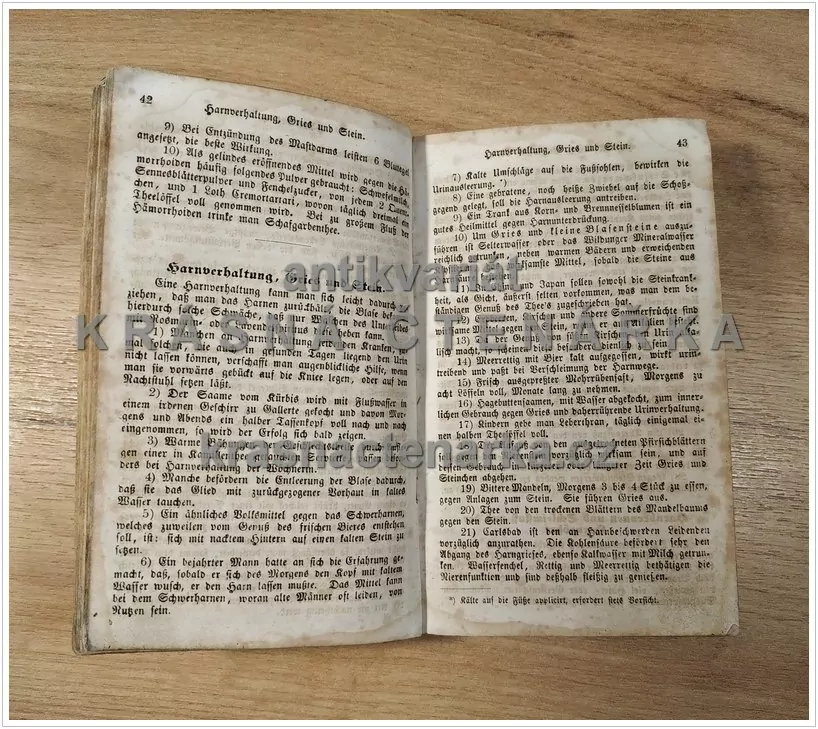 42
Harnverhaltung, Gries und Stein.
9) Bei Entzündung des Mastdarms leisten 6 Blutegel
angesetzt, die beste Wirkung.
10) Als gelindes eröffnendes Mittel wird gegen die Hä-
morrhoiden häufig folgendes Pulver gebraucht: Schwefelmilch,
Sennesblätterpulver und Fenchelzucker, von jedem 2 Quent-
chen, und 1 Loth Cremortartari, wovon täglich dreimal ein
Theelöffel voll genommen wird. Bei zu großem Fluß der
Hämorrhoiden trinke man Schafgarbenthee.
Harnverhaltung, Gries und Stein.
Eine Harnverhaltung kann man sich leicht dadurch zu-
ziehen, daß man das Harnen zurückhält; die Blase bekommt
hierdurch solche Schwäche, die nur Waschen des Unterleibs
mit Rosmarin- oder Lavendelspiritus wieder heben kann.
1) Bei Harnverhaltung werden Kranken, zu-
mal solchen, die auch in gesunden Tagen liegend den Urin
nicht lassen können, verschafft man augenblickliche Hilfe, wenn
man sie vorwärts gebückt auf die Kniee legen, oder auf den
Nachtstuhl setzen läßt.
2) Der Saame vom Kürbis wird mit Flußwasser in
einem irdenen Geschirr zu Gallerte gekocht und davon Mor-
gens und Abends ein halber Tassenkopf voll nach und nach
eingenommen, so wird der Erfolg sich bald zeigen.
3) Warme
gen einer in
ders bei Harnverhaltung der Wöchnerin.
4) Manche befördern die Entleerung der Blase dadurch,
daß sie das Glied mit zurückgezogener Vorhaut in kaltes
Wasser tauchen.
5) Ein ähnliches Volksmittel gegen das Schwerharnen,
welches zuweilen vom Genuß des frischen Bieres entstehen
soll, ist: sich mit nacktem Hintern auf einen kalten Stein zu
setzen.
6) Ein bejahrter Mann hatte an sich die Erfahrung ge-
macht, daß, sobald er sich des Morgens den Kopf mit kaltem
Wasser wusch, er den Harn lassen mußte. Das Mittel kann
bei dem Schwerharnen, woran alte Männer oft leiden, von
Nutzen sein.
Harnverhaltung, Gries und Stein.
43
7) Kalte Umschläge auf die Fußsohlen, bewirken die
Urinausleerung. *)
8) Eine gebratene, noch heiße Zwiebel auf die Schoß-
gegend gelegt, soll die Harnausleerung antreiben.
9) Ein Trank aus Korn- und Brennnesselblumen ist ein
gutes Heilmittel gegen Harnunterdrückung.
10) Um Gries und kleine Blasensteine auszu-
führen ist Selterwasser oder das Wildunger Mineralwasser
reichlich getrunken, neben warmen Bädern und erweichenden
das heilsamste Mittel, sobald die Steine aus
und Japan sollen sowohl die Steinkrank-
heit, als Gicht, äußerst selten vorkommen, was man dem be-
ständigen Genuß des Thee's zugeschrieben hat.
12) Gurken, Kirschen und andere Sommerfrüchte sind
13)
14) Meerrettig mit Bier kalt aufgegossen, wirkt urin-
treibend und paßt bei Verschleimung der Harnwege.
15) Frisch ausgepreßter Mohrrübensaft, Morgens zu
acht Löffeln voll, Monate lang zu nehmen.
16) Hagebuttensaamen, mit Wasser abgekocht, zum inner-
lichen Gebrauch gegen Gries und daherrührende Urinverhaltung.
17) Kindern gebe man Leberthran, täglich einigemal ei-
nen halben Theelöffel voll.
18) Thee von den getrockneten Pfirsichblättern
soll vorzüglich wirksam sein, und auf
dessen Gebrauch in kurzer Zeit Gries und
Steinchen abgehen.
19) Bittere Mandeln, Morgens 3 bis 4 Stück zu essen,
gegen Anlagen zum Stein. Sie führen Gries aus.
20) Thee von den trockenen Blättern des Mandelbaums
gegen den Stein.
21) Carlsbad ist den an Harnbeschwerden Leidenden
vorzüglich anzurathen. Die Kohlensäure befördert sehr den
Abgang des Harngrieses, ebenso Kalkwasser mit Milch getrun-
ken. Wasserfenchel, Rettig und Meerrettig bethätigen die
Nierenfunktion und sind deßhalb fleißig zu genießen.
*) Kälte auf die Füße applicirt, erfordert stets Vorsicht.
antikvariát
KRÁSNÁ ČTENÁŘKA
krasnactenarka.cz